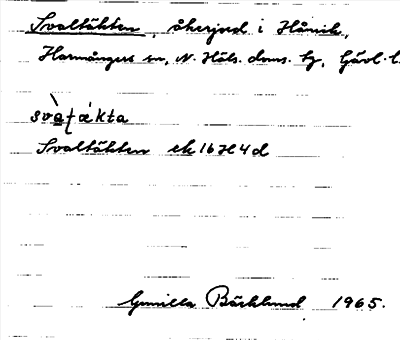 Svaltäkten, åkerjord i Hånick,
Harmångers sn, N. Häls. doms. tg, Gävl. l.
svàtǽkta
Svaltäkten ek 16H4d
Gunilla Bäcklund 1965.